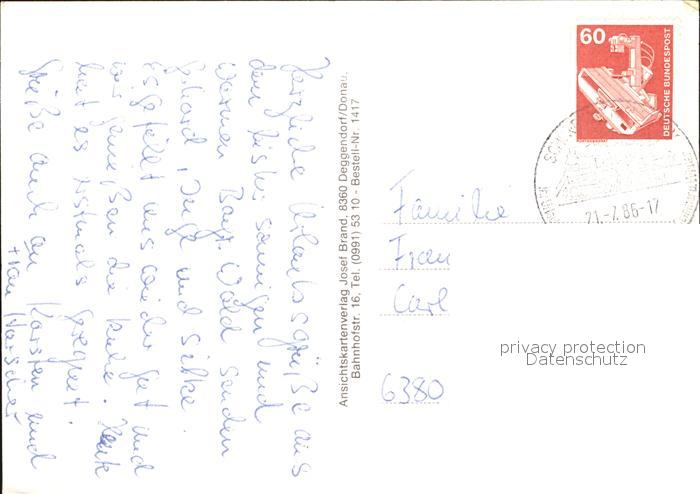 Herzliche Urlaubsgrüße aus
dem bisher sonnigen und
warmen Bayr. Wald senden
Gerhard, Inge und Silke.
Es gefällt uns wieder gut und
wir genießen die Ruhe. Heute
hat es erstmals geregnet.
Grüße auch an Karsten und
Frau
Ansichtskartenverlag Josef Brand, 8360 Deggendorf/Donau,
Bahnhofstr. 16, Tel. (0991) 53 10 - Bestell-Nr. 1417
60
DEUTSCHE BUNDESPOST
21.-7.86-17
Familie
Fran
Carl
6380
privacy protection
Datenschutz